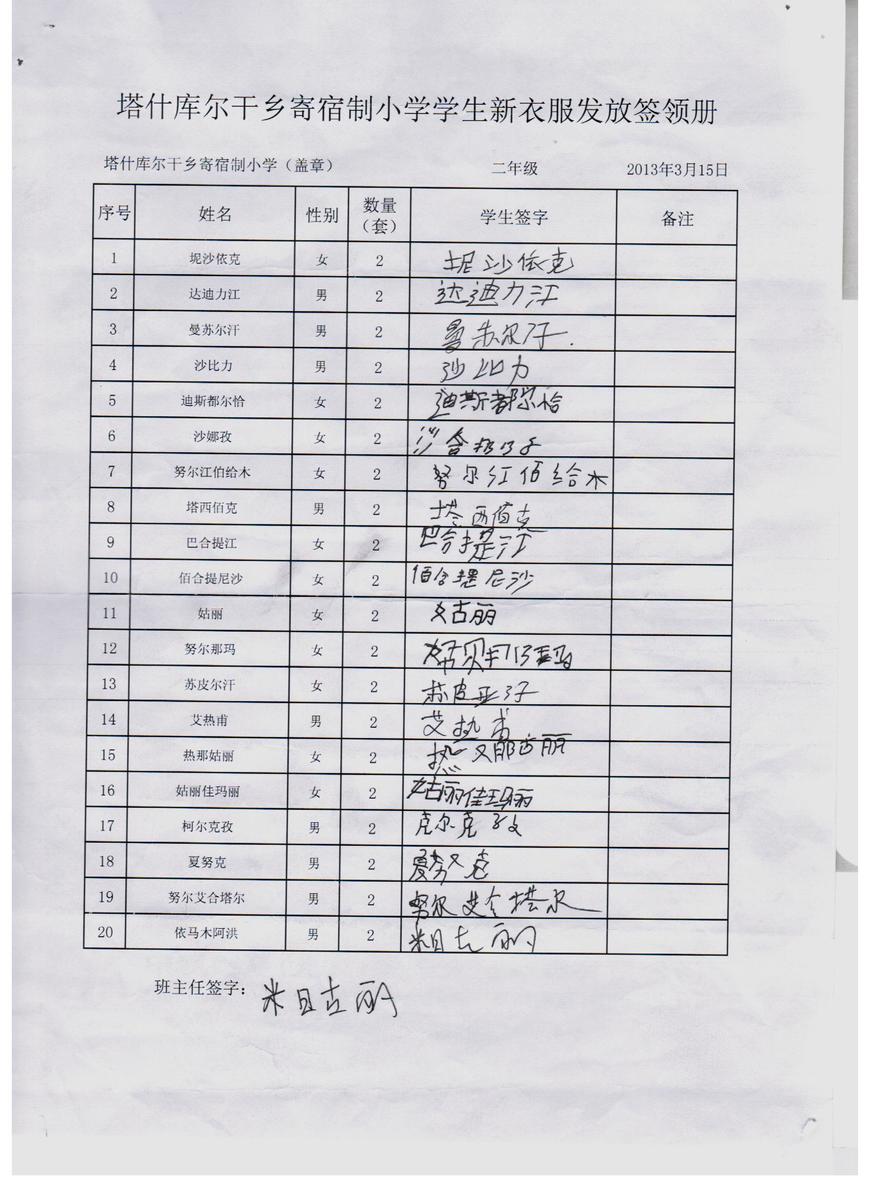 塔什库尔干乡寄宿制小学学生新衣服发放签领册
塔什库尔干乡寄宿制小学（盖章） 二年级 2013年3月15日
序号 姓名 性别 数量（套） 学生签字 备注
1 坭沙依克 女 2 坭沙依克
2 达迪力江 男 2 达迪力江
3 曼苏尔汗 男 2 曼苏尔汗
4 沙比力 男 2 沙比力
5 迪斯都尔恰 女 2 迪斯都尔恰
6 沙娜孜 女 2
7 努尔江伯给木 女 2 努尔红佰给木
8 塔西佰克 男 2 塔西佰克
9 巴合提江 女 2 巴合提江
10 佰合提尼沙 女 2 佰合提尼沙
11 姑丽 女 2 姑丽
12 努尔那玛 女 2
13 苏皮尔汗 女 2
14 艾热甫 男 2 艾热甫
15 热那姑丽 女 2
16 姑丽佳玛丽 女 2 姑丽佳玛丽
17 柯尔克孜 男 2 克尔克孜
18 夏努克 男 2
19 努尔艾合塔尔 男 2 努尔艾合塔尔
20 依马木阿洪 男 2 米日古丽
班主任签字： 米日古丽